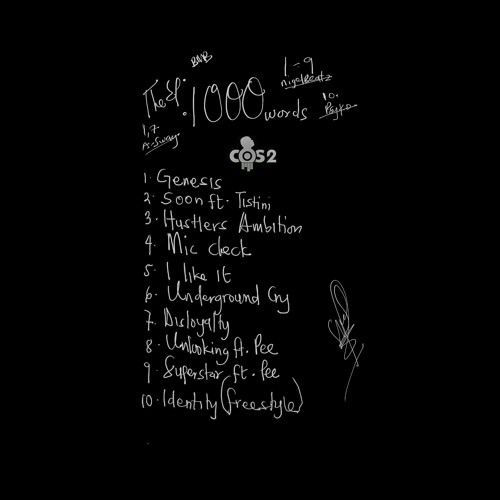 BNB
The Ep: 1000 words
1-9
nigelBeatz
10.
Psyko
1,7
COS2
1. Genesis
2. Soon ft. Tistini
3. Hustlers Ambition
4. Mic check
5. I like it
6. Underground Cry
7. Disloyalty
8. Unlooking ft. Pee
9. Superstar ft. Pee
10. Identity (freestyle)